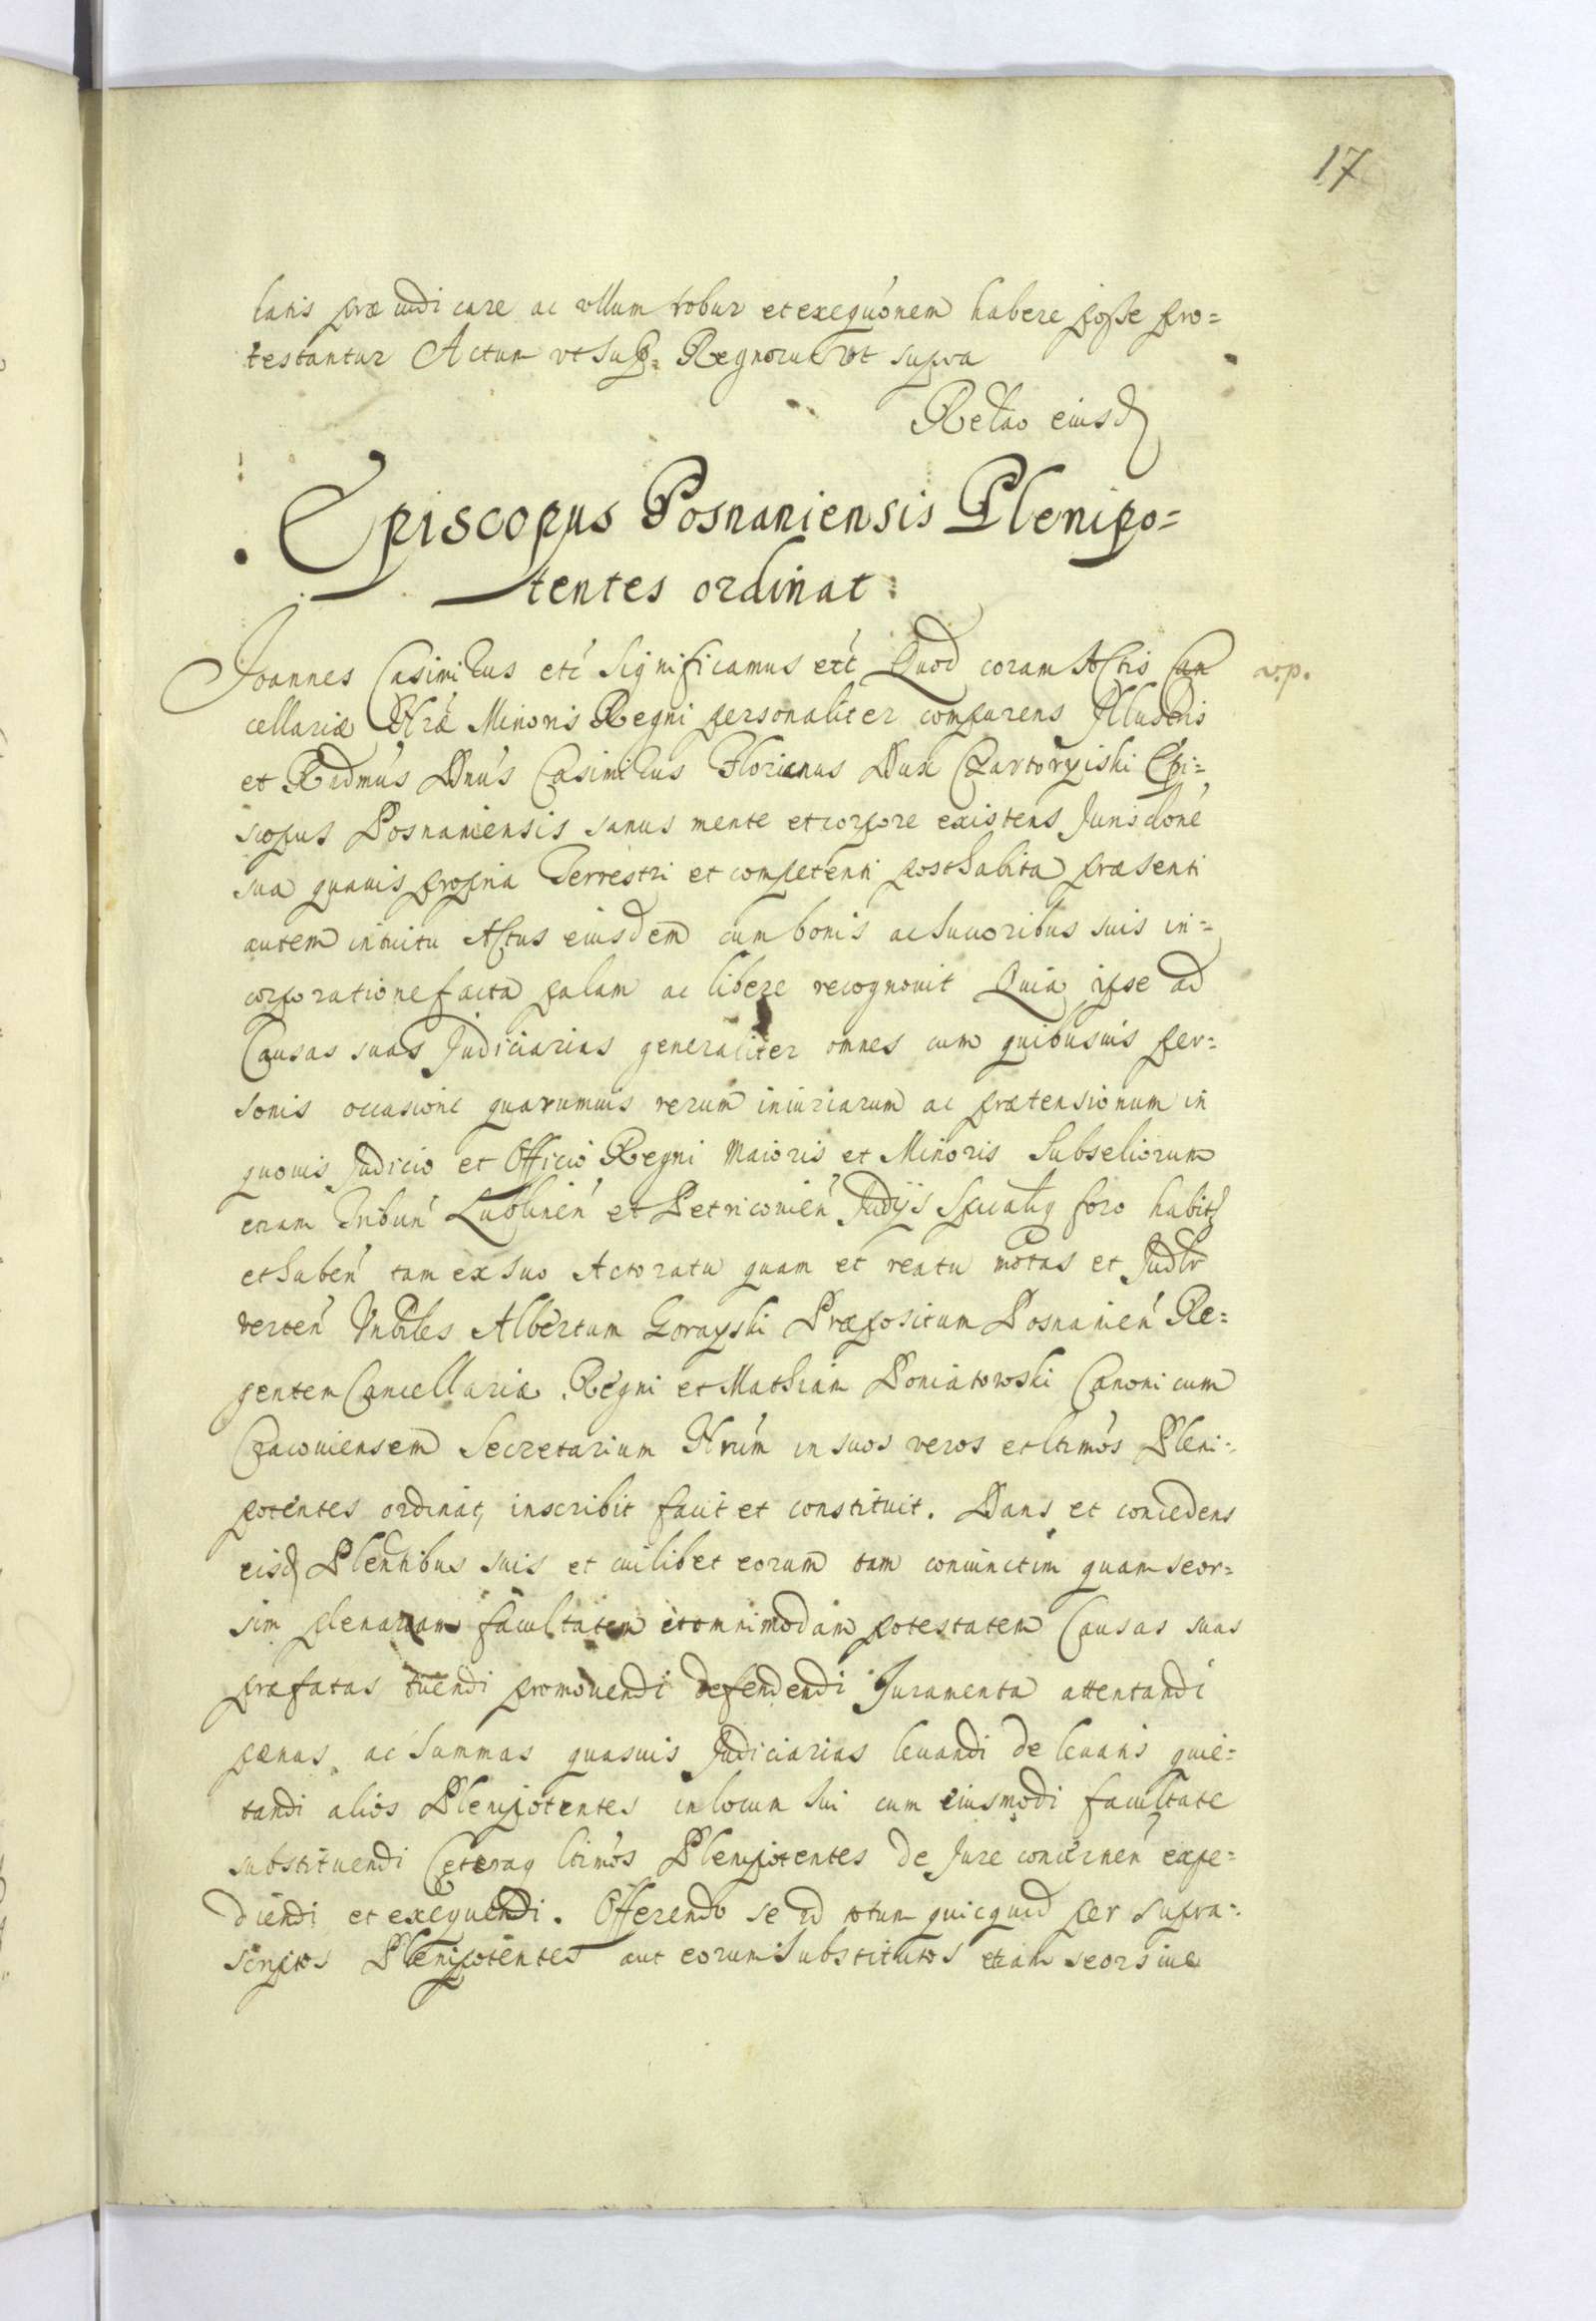 17
latis præiudicare ac ullum robur et exequõnem habere posse pro=
testantur Actum ut sup: Regnorum ut supra
Relãо eiusd
Episcopus Posnaniensis Plenipo=
tentes ordinat:
Joannes Casimirus etc Significamus etc Quod coram Actis Can
v.p.
cellariæ Nræ Minoris Regni personaliter comparens Illustris
et Rndmus Dnus Casimirus Florianus Dux Czartoryiski Epi=
scopus Posnaniensis sanus mente et corpore existens Jurisdone
sua quauis propria Terrestri et competenti posthabita præsenti
autem intuitu Actus eiusdem cum bonis ac Succoribus suis in=
corporatione facta palam ac libere recognouit Quia ipse ad
Causas suas Judiciarias generaliter omnes cum quibusuis per=
sonis occasione quarumuis rerum iniuriarum ac prætensionum in
quouis Judicio et Officio Regni Maioris et Minoris Subseliorum
etiam Tribun Lublinen et Petricouien Judijs Spualiq foro habit
et haben tam ex suo Actoratu quam et reatu motas et Judlr
verten Vnbiles Albertum Gorayski Præpositum Posnanien Re=
gentem Cancellariæ Regni et Mathiam Poniatowski Canonicum
Cracouiensem Secretarium Nrum in suos veros et ltimos Pleni=
potentes ordinat, inscribit facit et constituit. Dans et concedens
eisd Plentibus suis et cuilibet eorum tam coniunctim quam seor=
sim plenariam facultatem et omnimodam potestatem Causas suas
præfatas tuendi promouendi defendendi Juramenta attentandi
pænas ac Summas quasuis Judiciarias leuandi de leuatis quie=
tandi alios Plenipotentes in locum sui cum eiusmodi facultate
substituendi Ceteraq ltimos Plenipotentes de Jure concernen expe=
diendi et exequendi. Offerendo se id totum quicquid per supra=
scriptos Plenipotentes aut eorum Substitutos etiam seorsiue